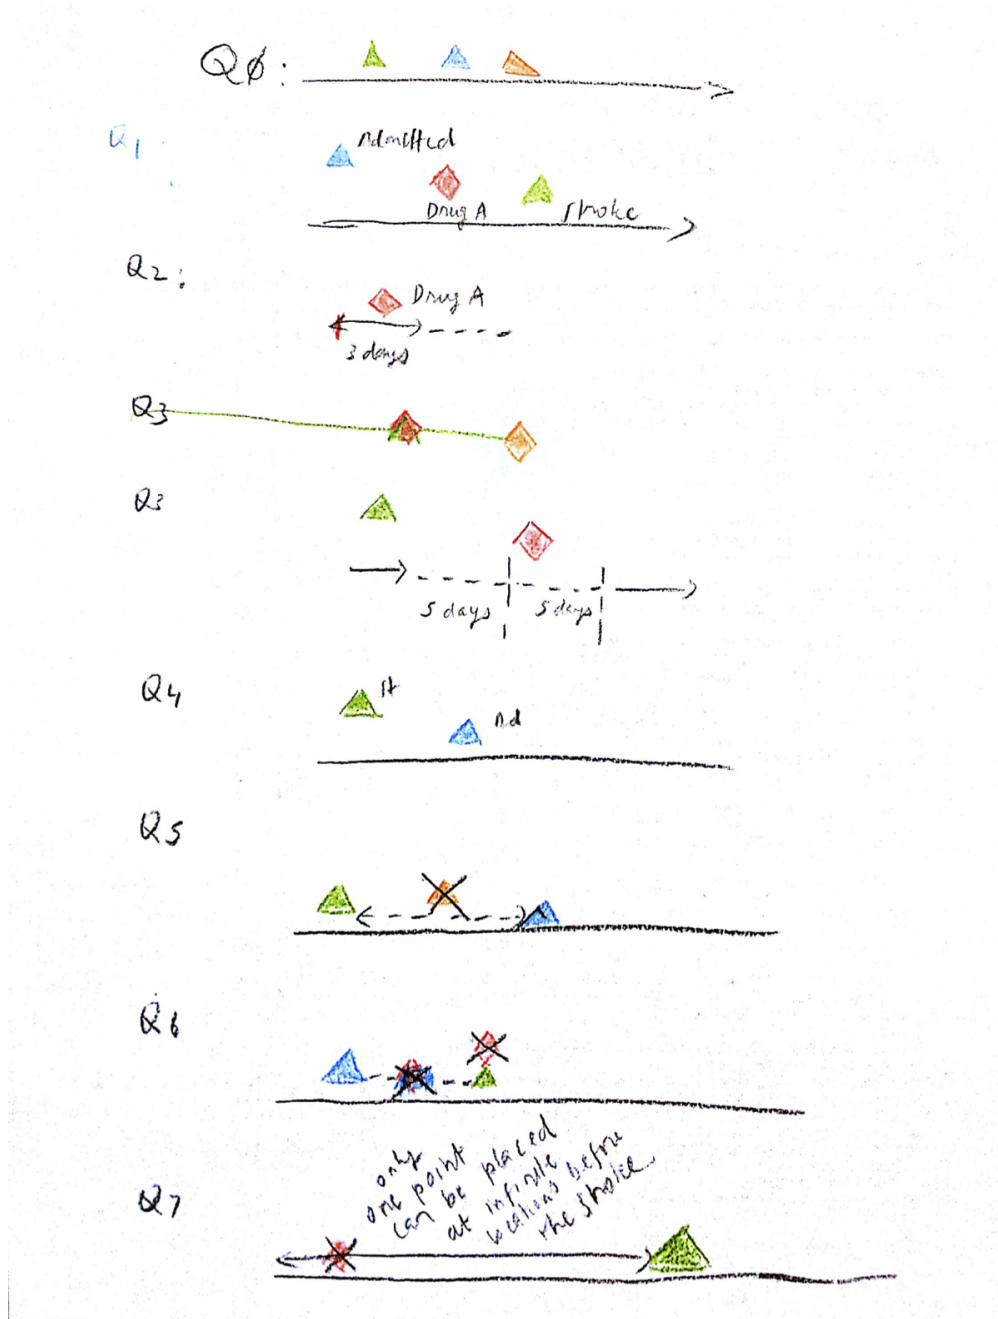 QØ:
Q1
Admitted
Drug A
stroke
Q2:
Drug A
3 days
Q3
Q3
5 days
5 days
Q4
St
Ad
Q5
Q6
only
one point
can be placed
at infinite
locations before
the stroke.
Q7